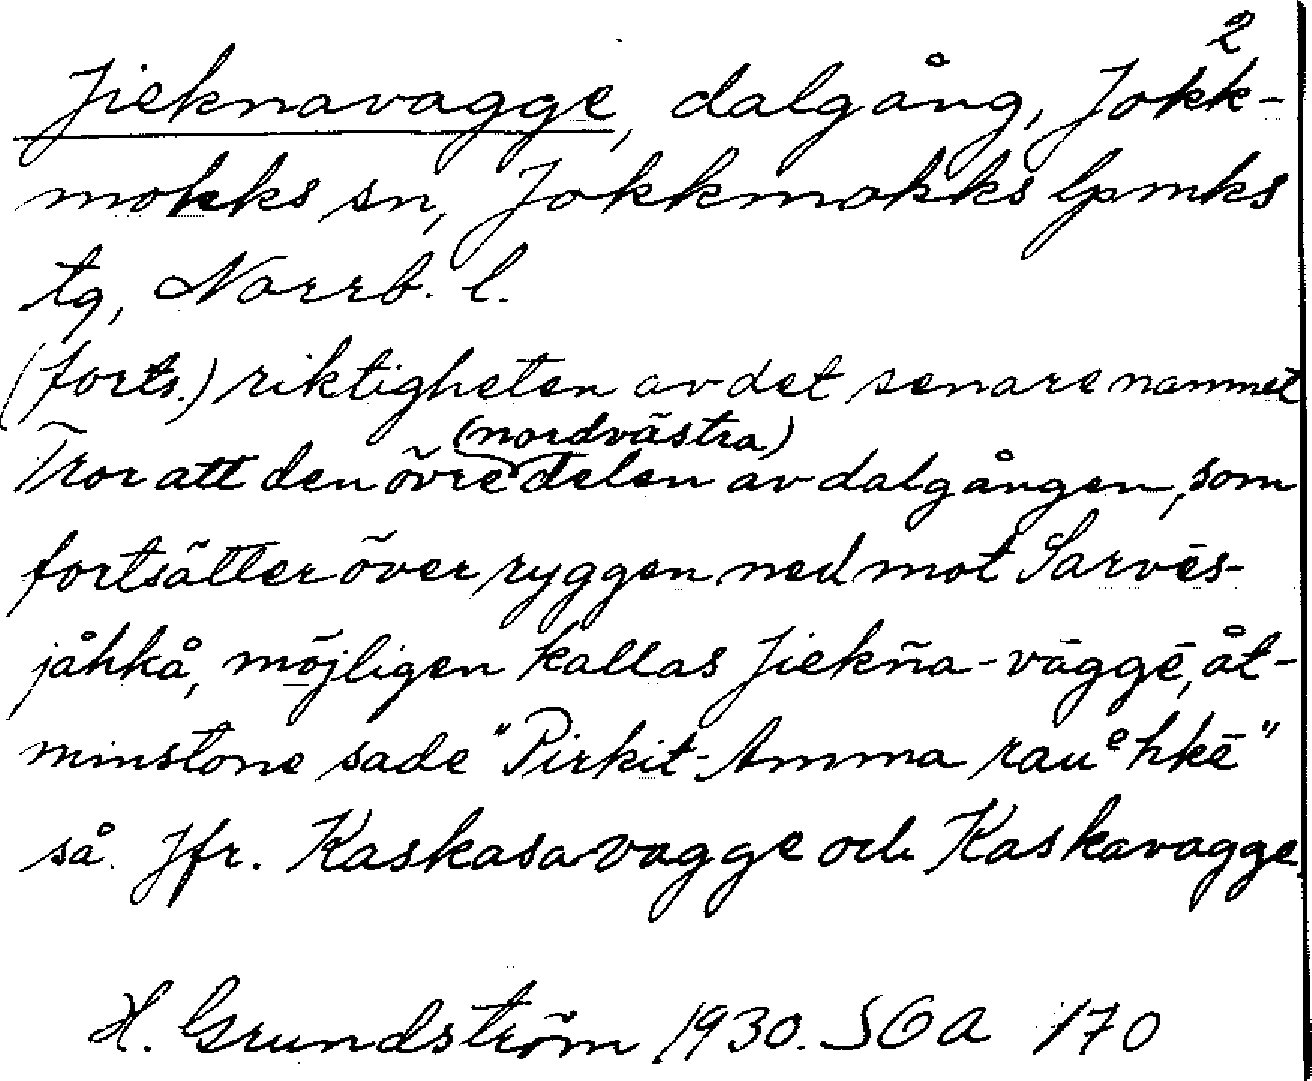 2
Jieknavagge, dalgång, Jokk-
mokks sn, Jokkmokks lpmks
tg, Norrb. l.
(forts.) riktigheten av det senare namnet
(nordvästra)
Tror att den övre delen av dalgången, som
fortsätter över ryggen ned mot Sarvēs-
jåhkå, möjligen kallas Jiekŋa-vāggē, åt-
minstone sade "Pirkit-Amma rauᵒhkē"
så. Jfr. Kaskasavagge och Kaskavagge.
H. Grundström 1930. SOA 170